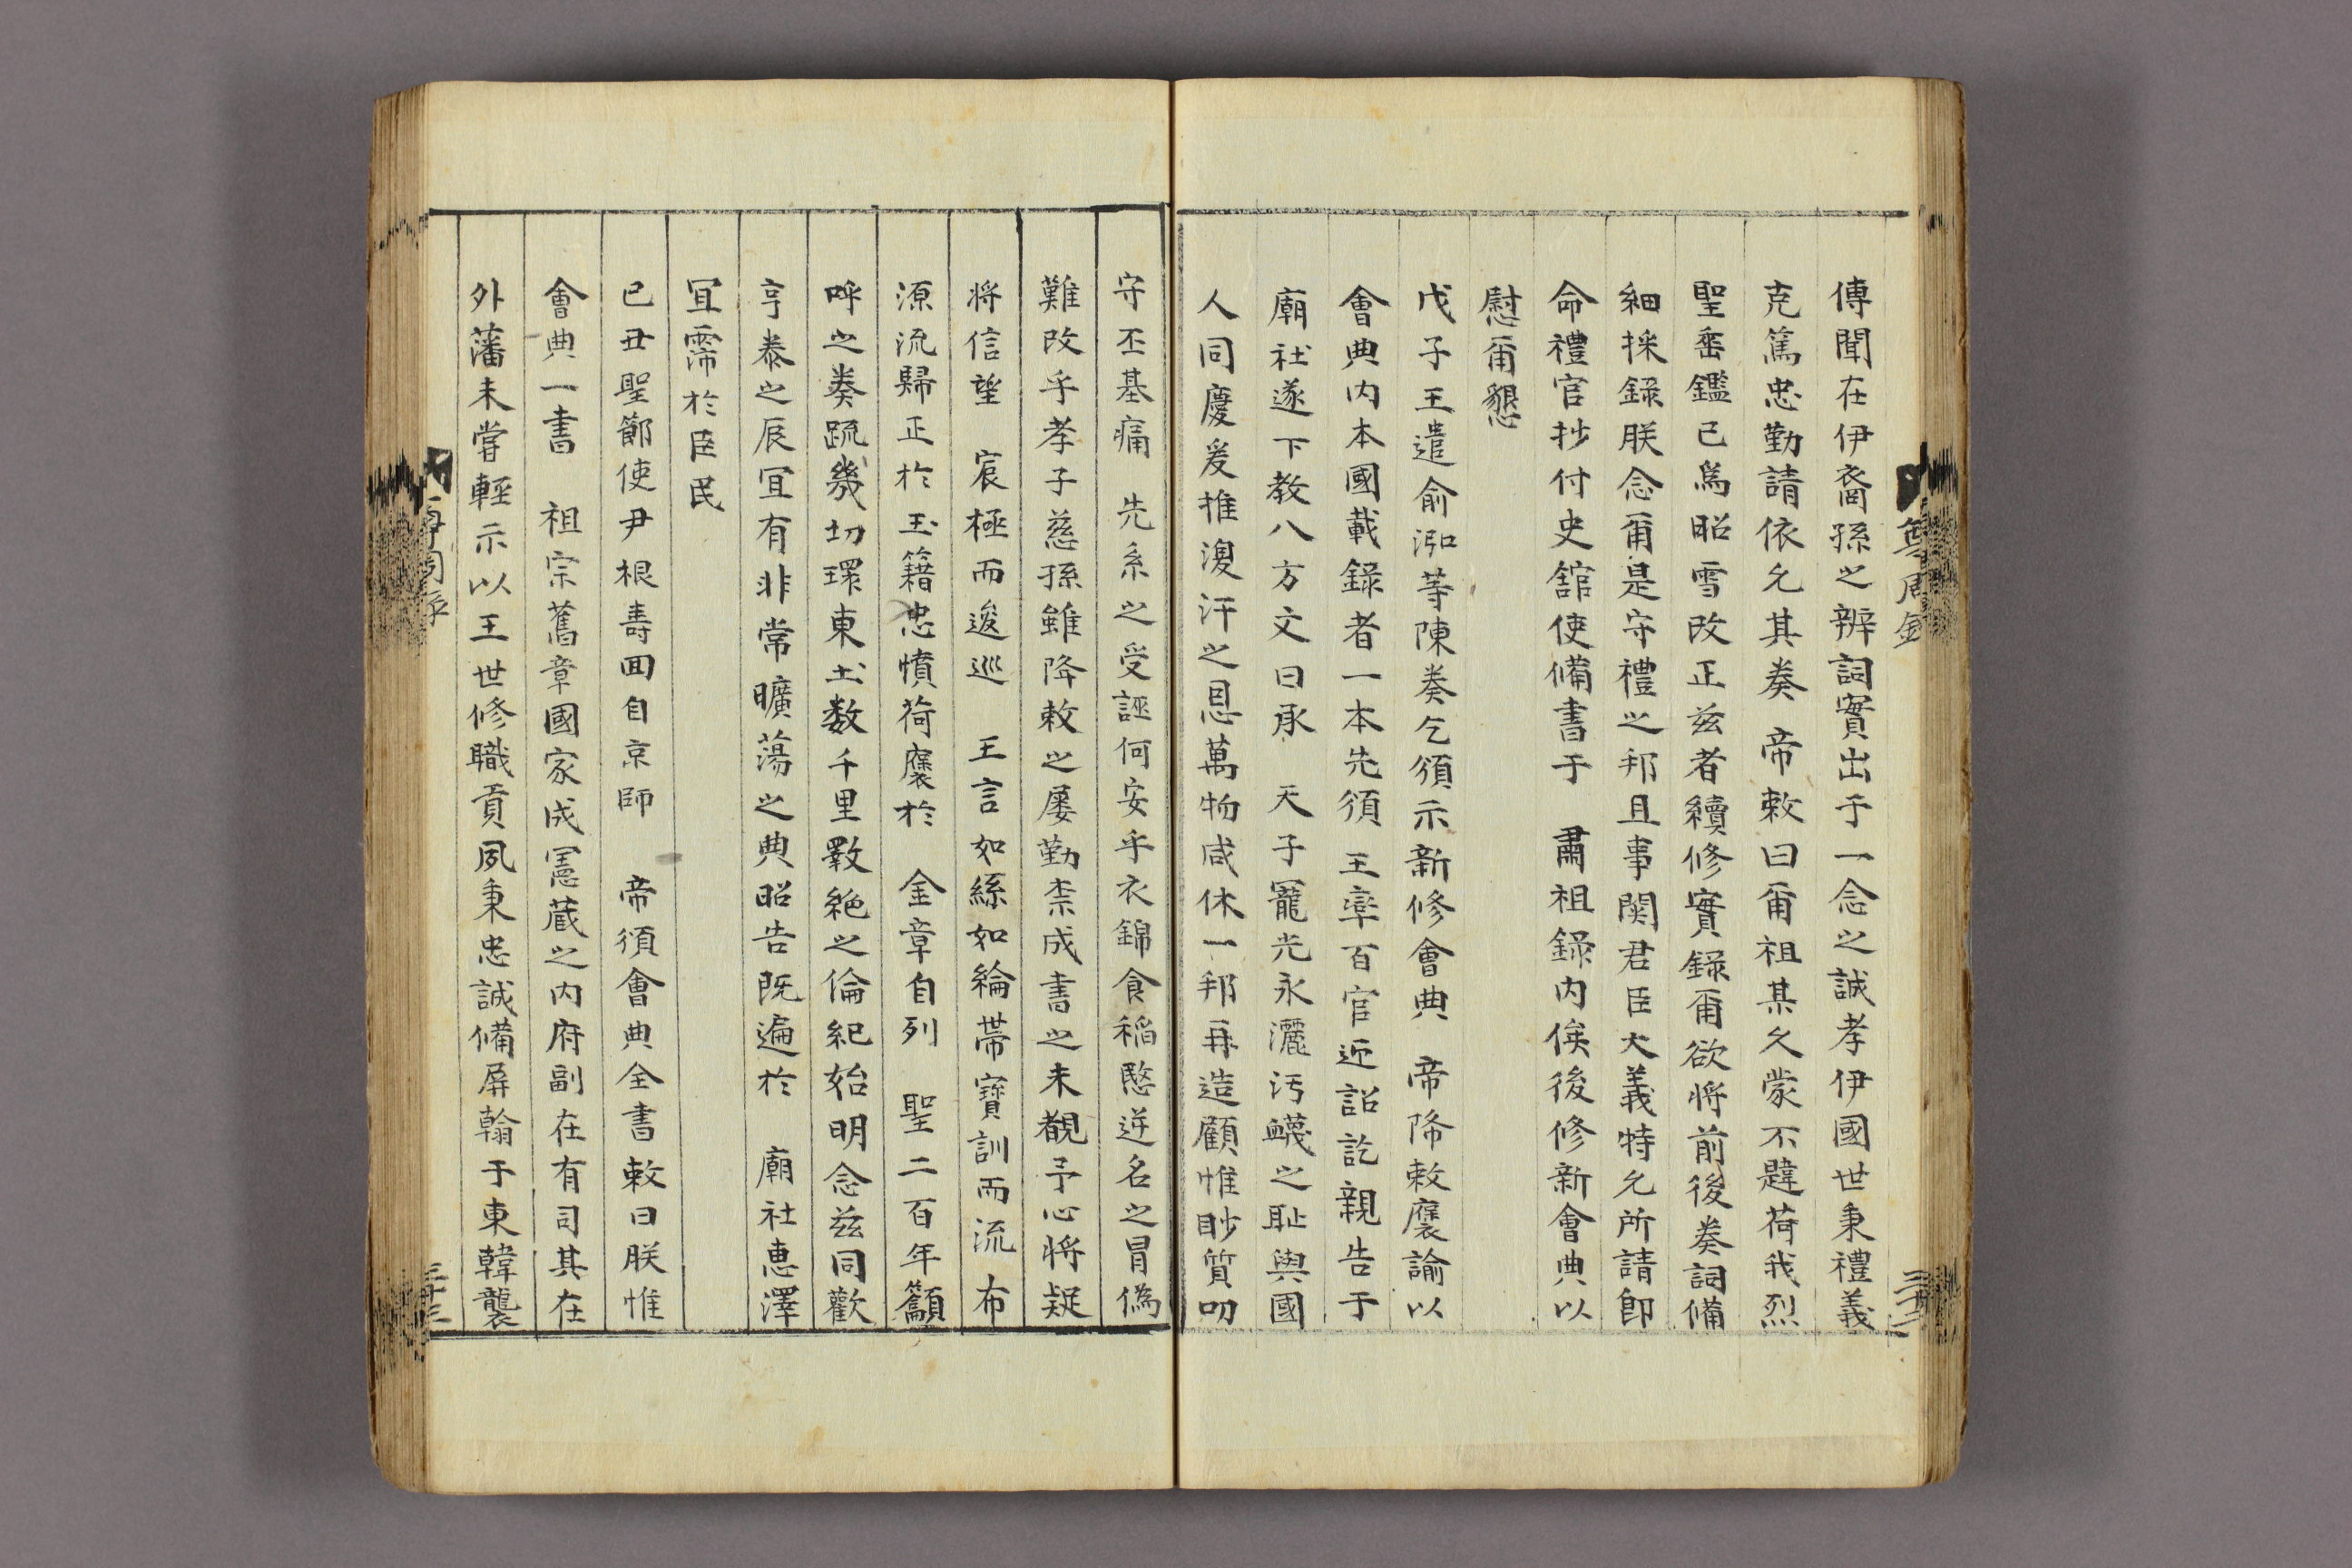 傳聞在伊裔孫之辨詞實出于一念之誠孝伊國世秉禮義
克篤忠勤請依允其奏 帝敕曰爾祖某久蒙不韙荷我烈
聖垂鑑已爲昭雪改正玆者續修實錄爾欲將前後奏詞備
細採錄朕念爾是守禮之邦且事関君臣大義特允所請即
命禮官抄付史舘使備書于 肅祖錄内俟後修新會典以
慰爾懇
戊子王遣俞泓等陳奏乞頒示新修會典 帝降敕襃諭以
會典内本國載錄者一本先頒 王率百官迎詔訖親告于
廟社遂下教八方文曰承 天子寵光永灑汚衊之恥與國
人同慶爰推渙汗之恩萬物咸休一邦再造顧惟眇質叨
守丕基痛 先系之受誣何安乎衣錦食稻愍迸名之冒僞
難改乎孝子慈孫雖降敕之屢勤柰成書之未覩予心將疑
将信望 宸極而逡巡 王言如絲如綸帶寶訓而流布
源流歸正於玉籍忠憤荷襃於 金章自列 聖二百年籲
呼之奏疏幾切環東土数千里斁絶之倫紀始明念玆同歡
亨泰之辰冝有非常曠蕩之典昭告既遍於 廟社恵澤
冝霈於臣民
已丑聖節使尹根壽囬自京師 帝頒會典全書敕曰朕惟
會典一書 祖宗舊章國家成憲蔵之内府副在有司其在
外藩未嘗輕示以王世修職貢夙秉忠誠備屏翰于東韓襲